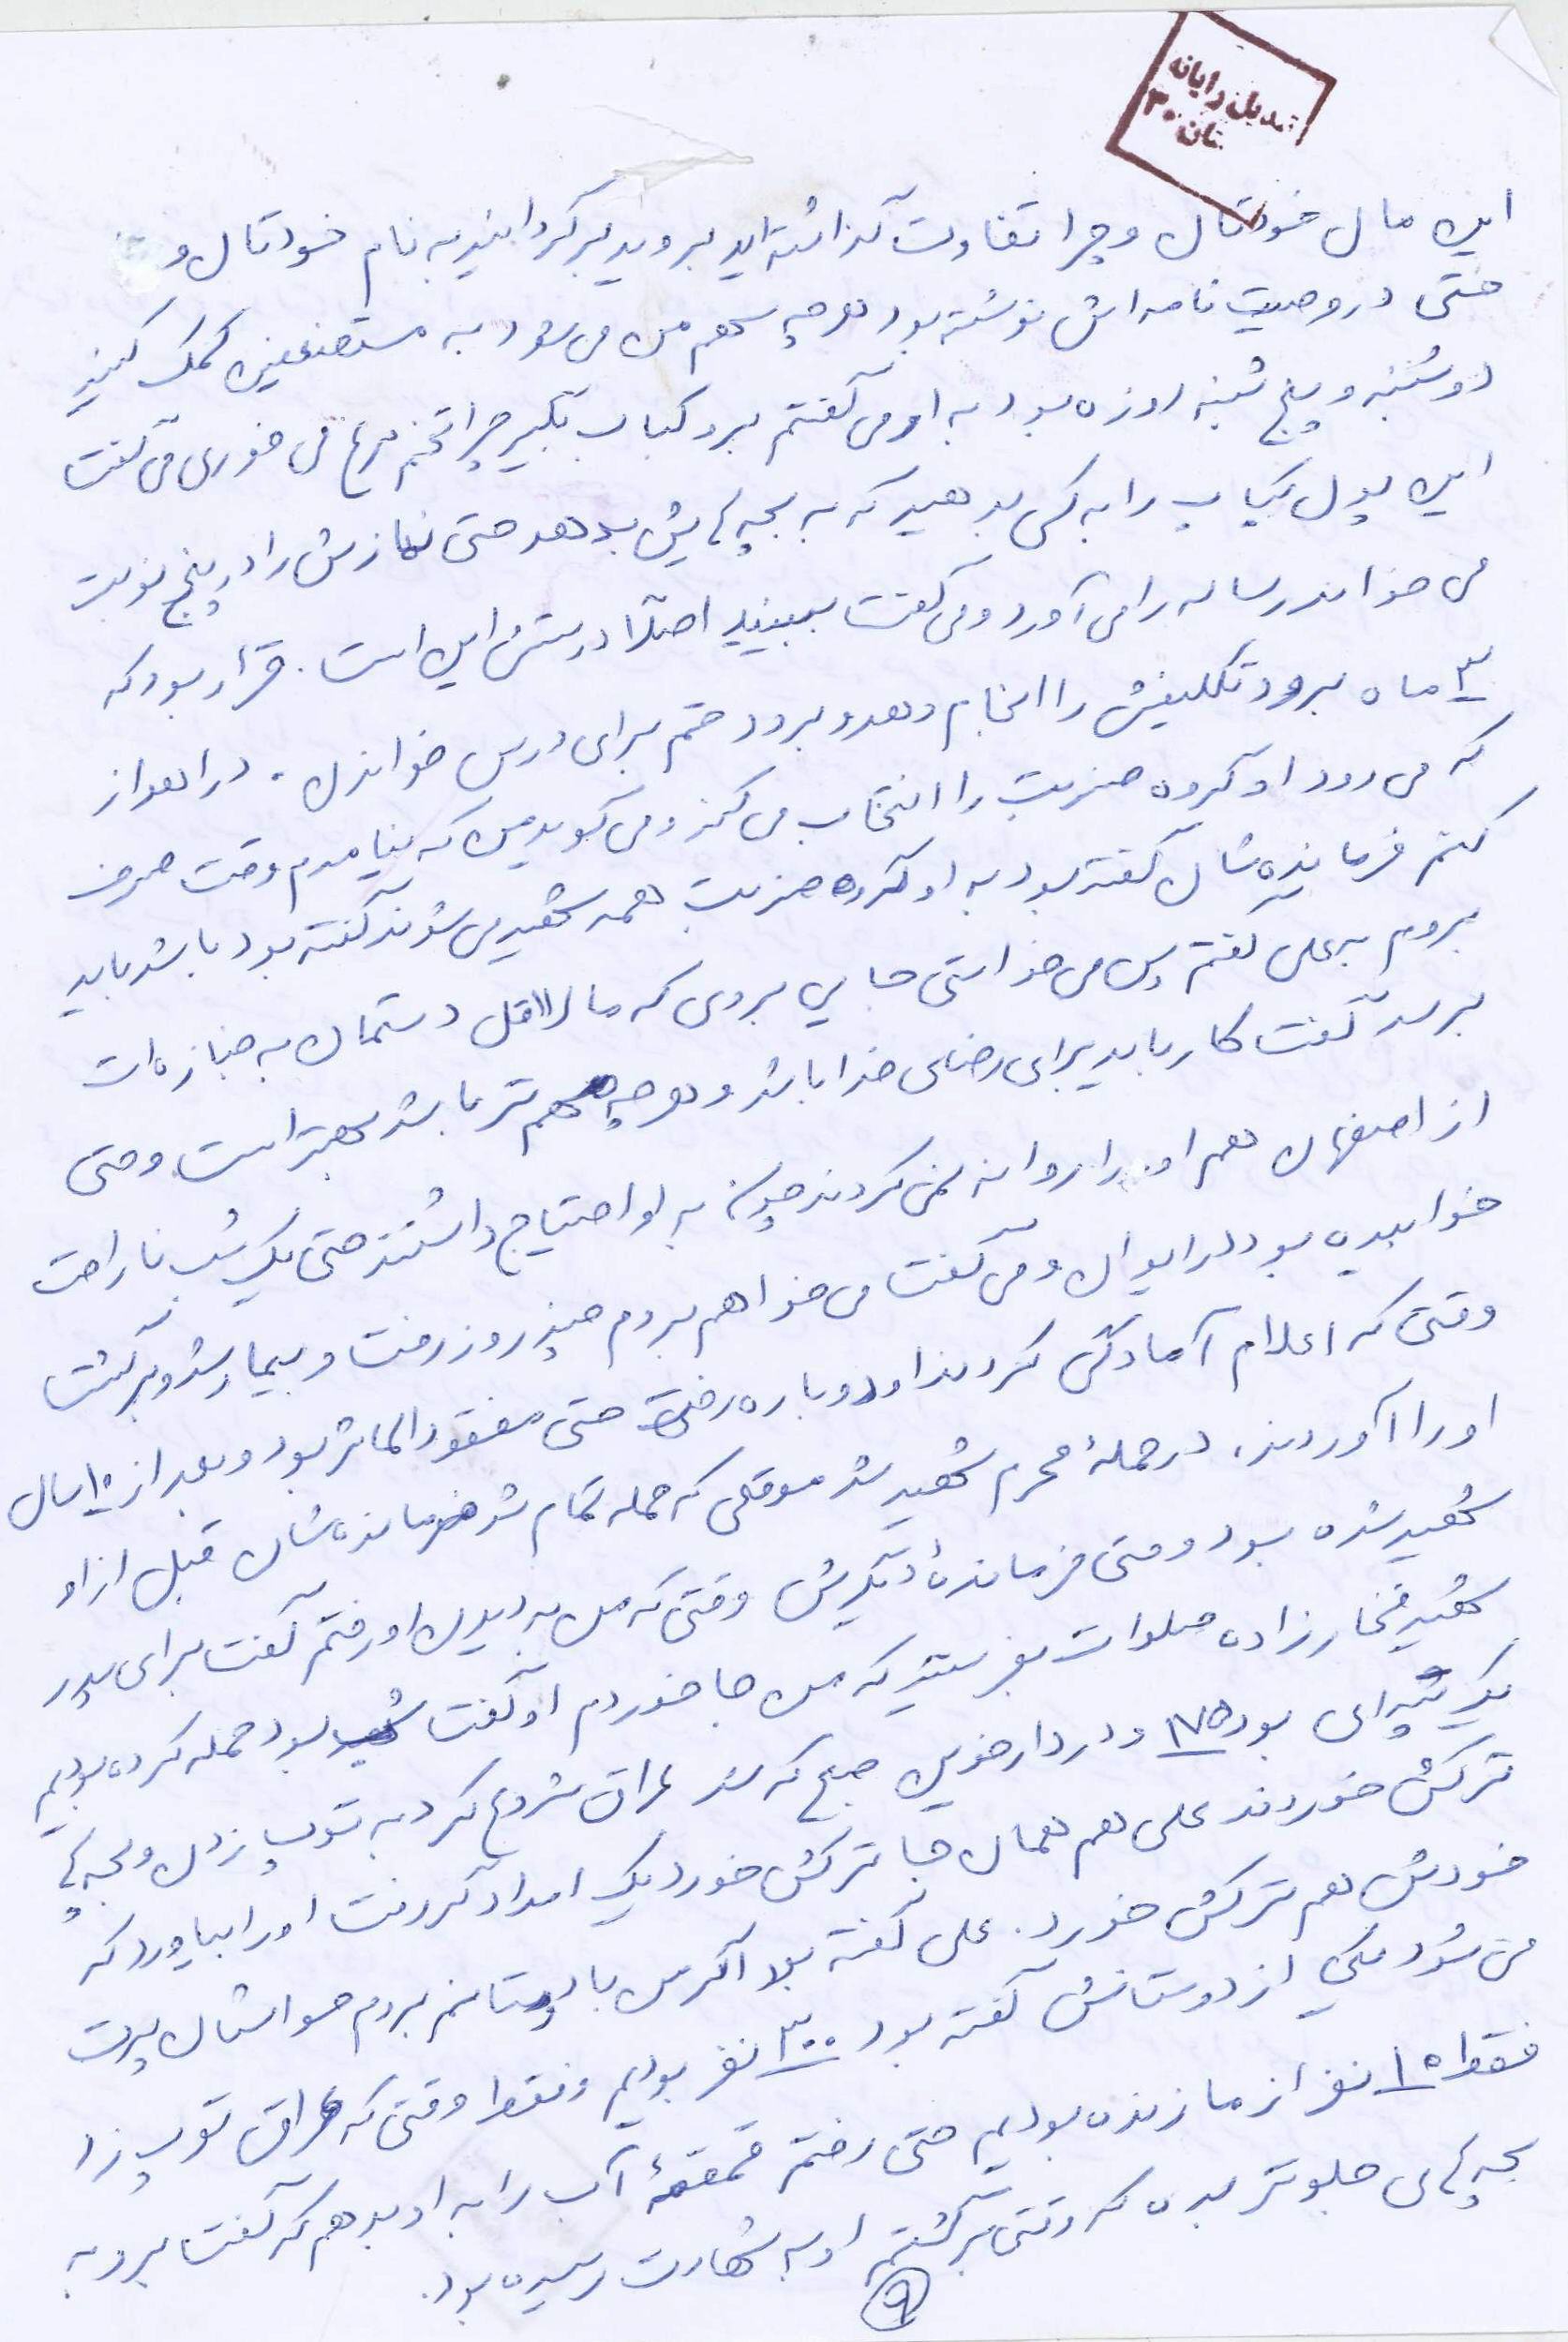 تبدیل رایانه
تان ۳۰
این مال خودتان و چرا تفاوت گذاشته‌اید بروید برگردانید به نام خودتان و
حتی در وصیت نامه‌اش نوشته بود هر چه سهم من می‌شود به مستضعفین کمک کنید
دوشنبه و پنج شنبه روزه بود به او می‌گفتم برو کباب بگیر چرا تخم مرغ می‌خوری می‌گفت
این پول کباب را به کسی بدهید که به بچه‌هایش بدهد حتی نمازش را در پنج نوبت
می‌خواند رساله را می‌آورد و می‌گفت ببینید اصلاً درستش این است. قرار بود که
۳ ماه برود تکلیفش را انجام دهد و برود قم برای درس خواندن. در اهواز
که می‌رود او گروه ضربت را انتخاب می‌کند و می‌گوید من که نیامدم وقت صرف
کنم فرمانده‌شان گفته بود به او گروه ضربت همه شهید می‌شوند گفته بود باشد باید
بروم به علی گفتم پس می‌خواستی جایی بروی که ما لااقل دستمان به جنازه‌ات
برسد گفت کار باید برای رضای خدا باشد و هر چه مهم تر باشد بهتر است و حتی
از اصفهان هم او را روانه نمی‌کردند چون به او احتیاج داشتند حتی یک شب ناراحت
خوابیده بود در ایوان و می‌گفت می‌خواهم بروم چند روز رفت و بیمار شد و برگشت
وقتی که اعلام آمادگی کردند او دوباره رفت حتی مفقودالاثر بود و بعد از ۱۰ سال
او را آوردند، در حملهٔ محرم شهید شد موقعی که حمله تمام شد فرمانده‌شان قبل از او
شهید شده بود و حتی فرماندهٔ دیگرش وقتی که من به دیدن او رفتم گفت برای پدر
شهید فخارزاده صلوات بفرستید که من جا خوردم او گفت شب بود حمله کرده بودیم
یک تپه‌ای بود ۱۷۵ و در دارخوین صبح که شد عراق شروع کرد به توپ زدن و بچه‌ها
ترکش خوردند علی هم همان جا ترکش خورد یک امدادگر رفت او را بیاورد که
خودش هم ترکش خورد. علی گفته بود اگر من با دوستانم بروم حواسشان پرت
می‌شود یکی از دوستانش گفته بود ۳۰۰ نفر بودیم و فقط وقتی که عراق توپ زد
فقط ۱۵ نفر از ما زنده بودیم حتی رفتم قمقمهٔ آب را به او بدهم که گفت برو به
بچه‌های جلوتر بده که وقتی برگشتم او به شهادت رسیده بود.
۹